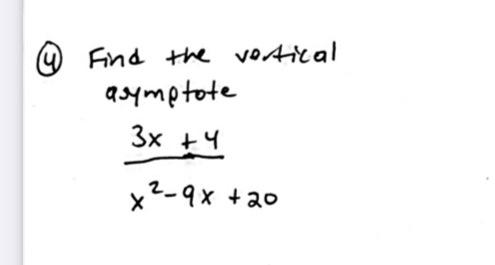 ④ Find the vertical
asymptote
3x + 4
x²-9x + 20